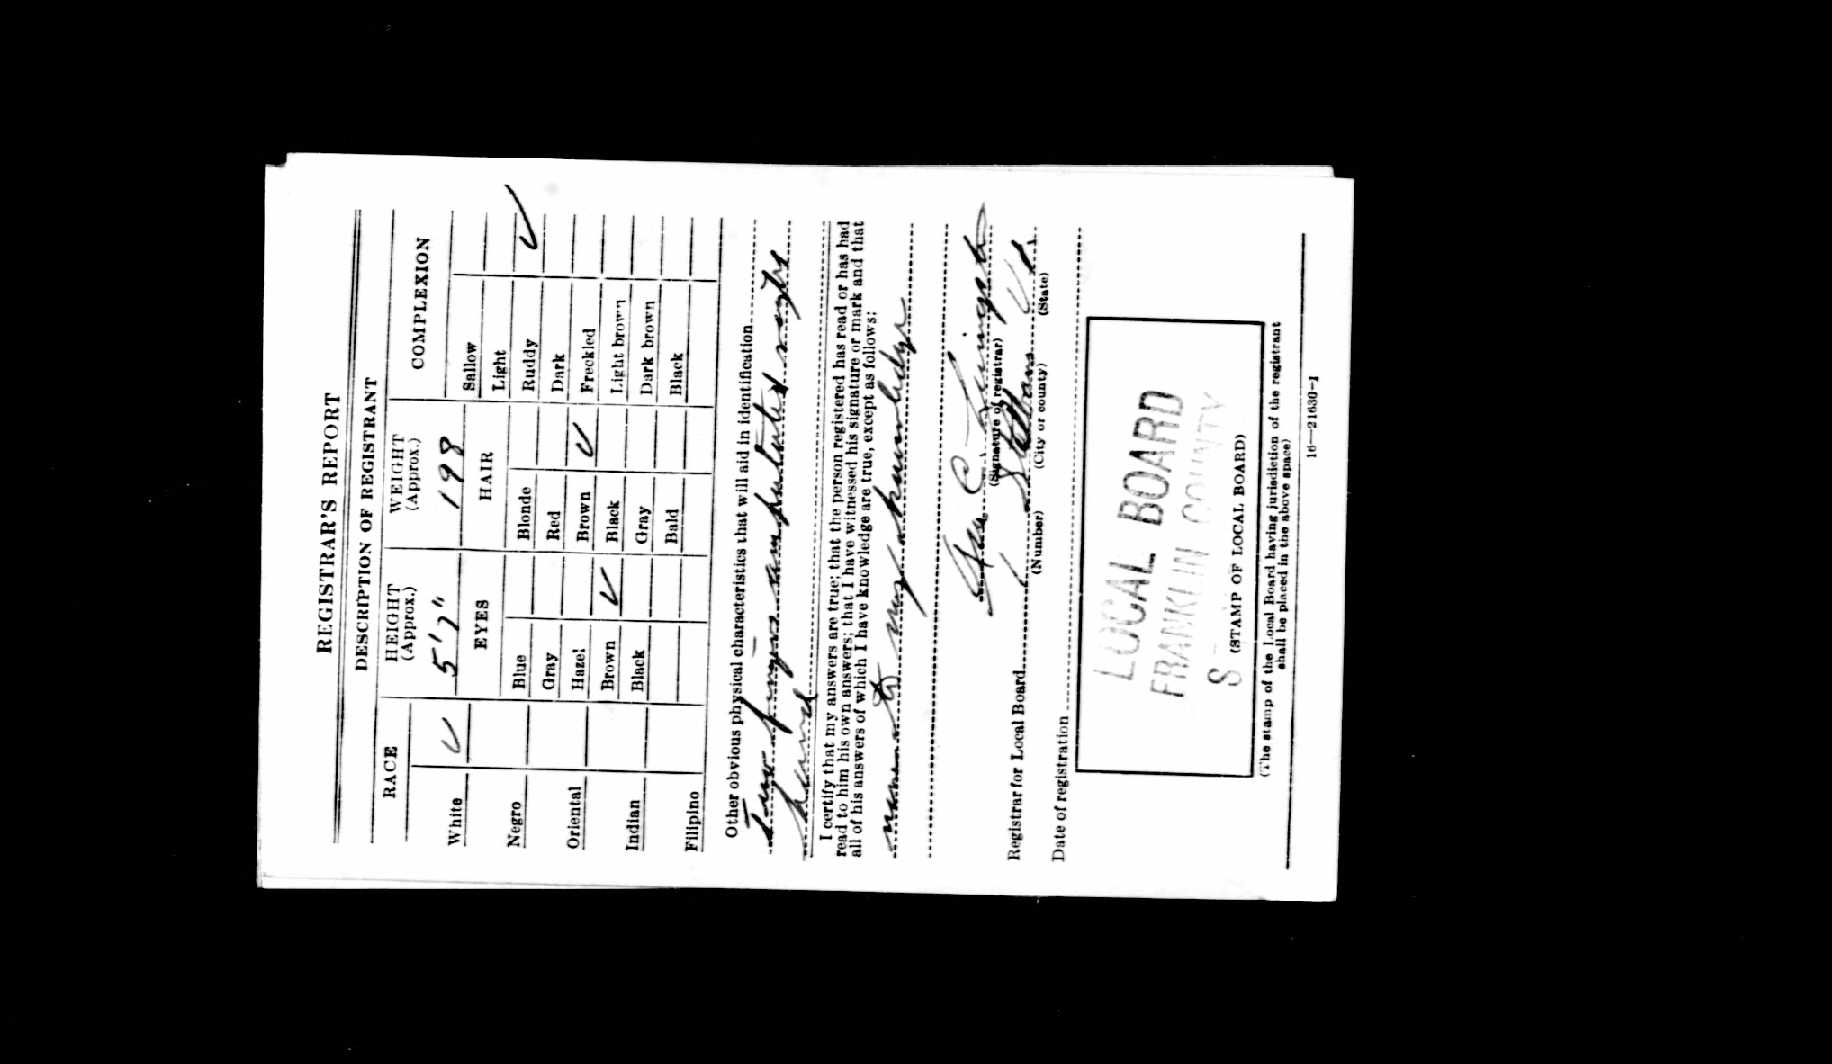 REGISTRAR'S REPORT
DESCRIPTION OF REGISTRANT
RACE
HEIGHT
(Approx.)
WEIGHT
(Approx.)
COMPLEXION
5'7"
198
White ✓
EYES
HAIR
Sallow
Light
Negro
Blue
Blonde
Ruddy ✓
Gray
Red
Dark
Oriental
Hazel
Brown ✓
Freckled
Brown ✓
Black
Light brown
Indian
Black
Gray
Dark brown
Bald
Black
Filipino
Other obvious physical characteristics that will aid in identification
two fingers amputated right
hand
I certify that my answers are true; that the person registered has read or has had
read to him his own answers; that I have witnessed his signature or mark and that
all of his answers of which I have knowledge are true, except as follows:
none to my knowledge
C.
(Signature of registrar)
Registrar for Local Board 1 St Albans Vt.
(Number) (City or county) (State)
Date of registration
LOCAL BOARD
FRANKLIN COUNTY
S
(STAMP OF LOCAL BOARD)
(The stamp of the Local Board having jurisdiction of the registrant
shall be placed in the above space)
16—21630-1